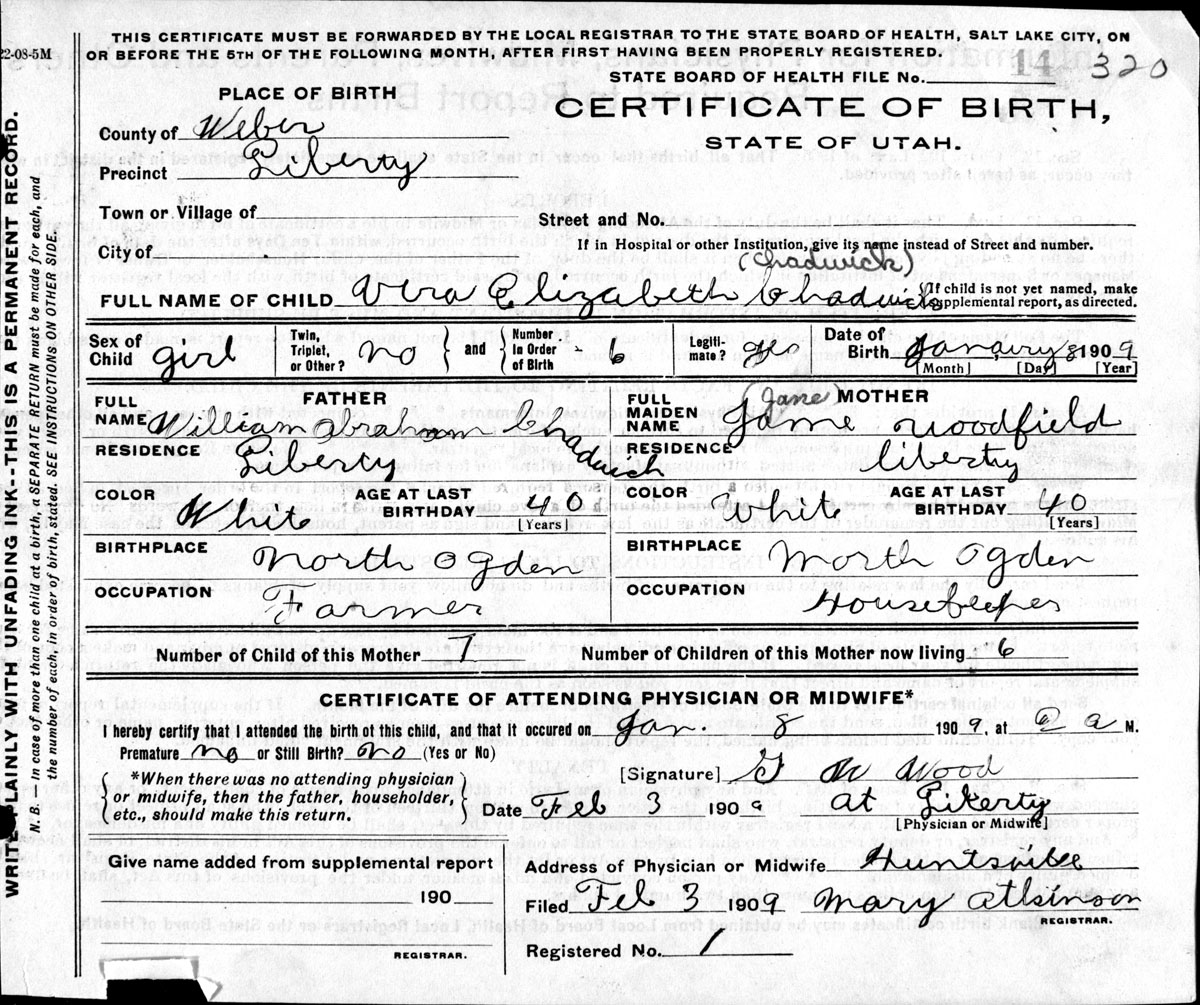 THIS CERTIFICATE MUST BE FORWARDED BY THE LOCAL REGISTRAR TO THE STATE BOARD OF HEALTH, SALT LAKE CITY, ON
22-08-5M OR BEFORE THE 5TH OF THE FOLLOWING MONTH, AFTER FIRST HAVING BEEN PROPERLY REGISTERED.
STATE BOARD OF HEALTH FILE No. 14 320
PLACE OF BIRTH
CERTIFICATE OF BIRTH,
STATE OF UTAH.
County of Weber
Precinct Liberty
Town or Village of
Street and No.
City of
If in Hospital or other Institution, give its name instead of Street and number.
(Chadwick)
FULL NAME OF CHILD Vera Elizabeth Chadwick
{If child is not yet named, make
supplemental report, as directed.
Sex of Child girl
Twin, Triplet, or Other? no
and
Number In Order of Birth 6
Legiti- mate?
Date of Birth January 8 1909
[Month] [Day] [Year]
FATHER
FULL NAME William Abraham Chadwick
RESIDENCE Liberty
COLOR White
AGE AT LAST BIRTHDAY 40
[Years]
BIRTHPLACE North Ogden
OCCUPATION Farmer
(Jane) MOTHER
FULL MAIDEN NAME Jane Woodfield
RESIDENCE liberty
COLOR White
AGE AT LAST BIRTHDAY 40
[Years]
BIRTHPLACE North Ogden
OCCUPATION Housekeeper
Number of child of this Mother 7
Number of Children of this Mother now living 6
CERTIFICATE OF ATTENDING PHYSICIAN OR MIDWIFE*
I hereby certify that I attended the birth of this child, and that it occured on Jan. 8 1909, at a M.
Premature no or Still Birth? no (Yes or No)
*When there was no attending physician
or midwife, then the father, householder,
etc., should make this return.
[Signature] G W Wood
Date Feb 3 1909 at Liberty
[Physician or Midwife]
Give name added from supplemental report
190
REGISTRAR.
Address of Physician or Midwife Huntsville
Filed Feb 3 1909 Mary Atkinson
REGISTRAR.
Registered No. 1
WRITE PLAINLY WITH UNFADING INK--THIS IS A PERMANENT RECORD.
N. B. — In case of more than one child at a birth, a SEPARATE RETURN must be made for each, and
the number of each, in order of birth, stated. SEE INSTRUCTIONS OTHER SIDE.